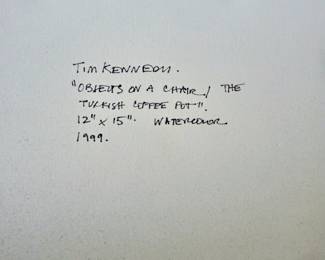 TIM KENNEDY.
"OBJECTS ON A CHAIR / THE
TURKISH COFFEE POT".
12" x 15". WATERCOLOR
1999.